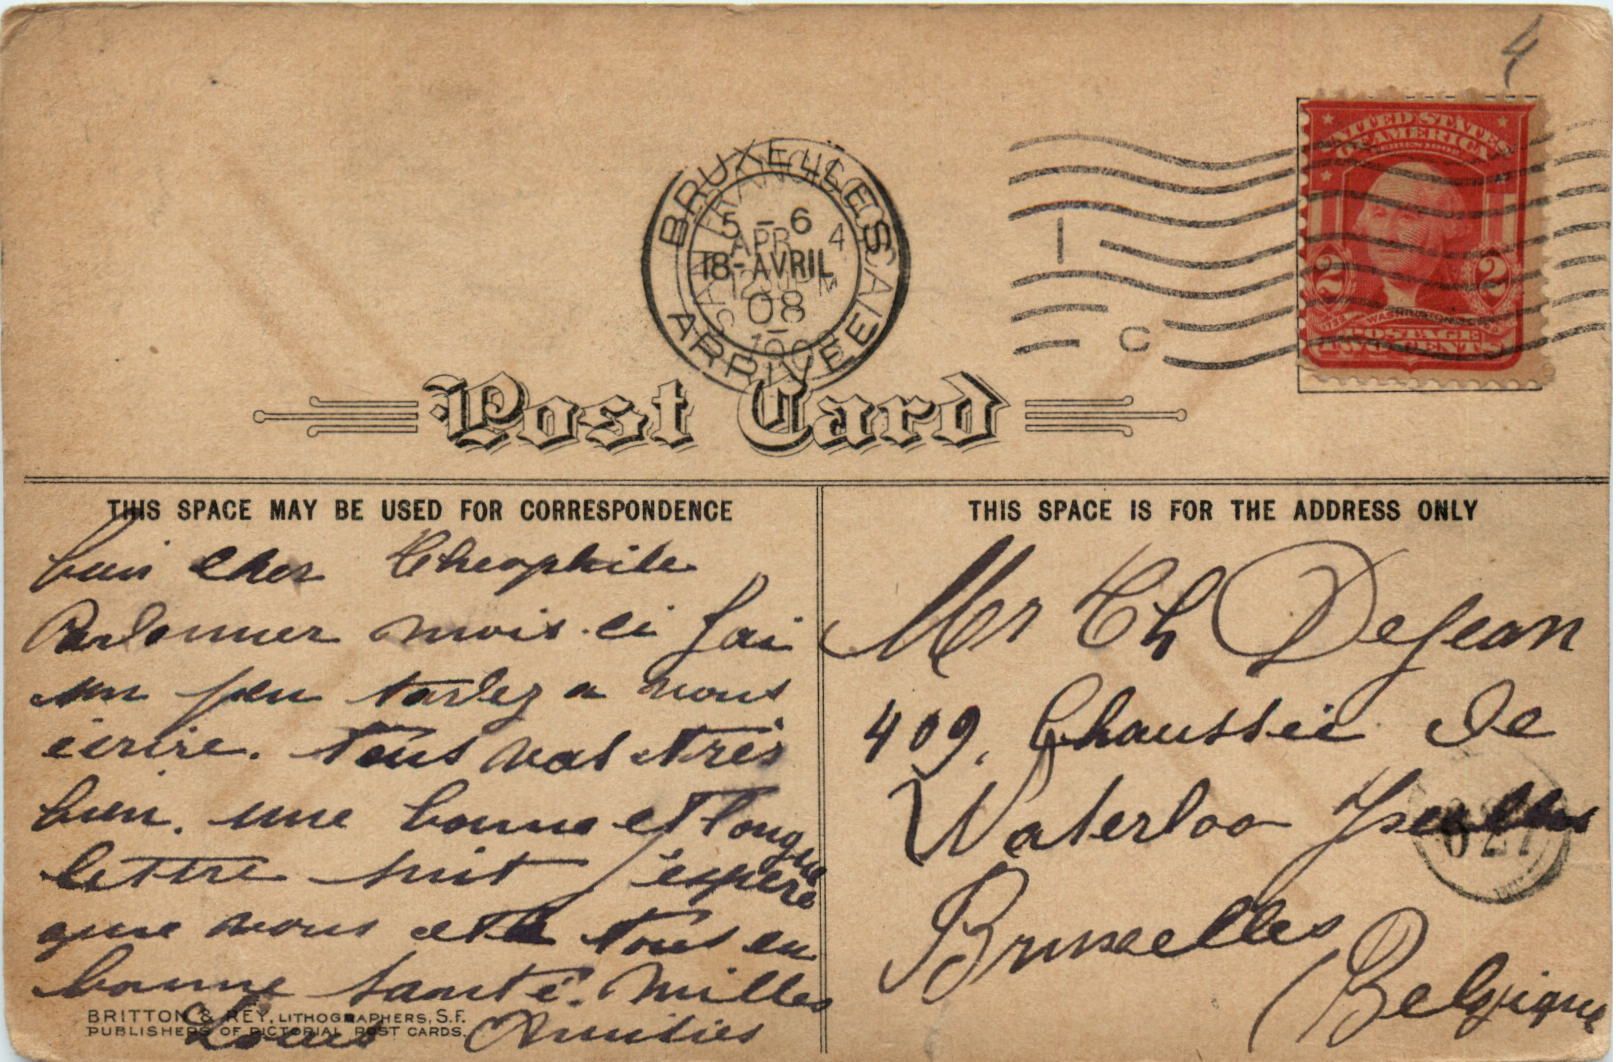 4
UNITED STATES
OF AMERICA
SERIES 1902
2 2
WASHINGTON
POSTAGE
TWO CENTS
1 C
BRUXELLES
5-6
18-AVRIL
08
ARRIVÉE
SAN FRANCISCO
APR 4
12 M
190
Post Card
THIS SPACE MAY BE USED FOR CORRESPONDENCE
bien cher Theophile
Pardonner mois-ci j'ai
un peu tardez a vous
écrire. tous vas très
bien. une bonne et longue
lettre suit j'espère
que vous ete tous en
bonne santé. Milles
Amitiés
Louis
BRITTON & REY, LITHOGRAPHERS, S.F.
PUBLISHERS OF PICTORIAL POST CARDS.
THIS SPACE IS FOR THE ADDRESS ONLY
Mr Th DeJean
409, Chaussée de
Waterloo
Bruxelles
Belgique